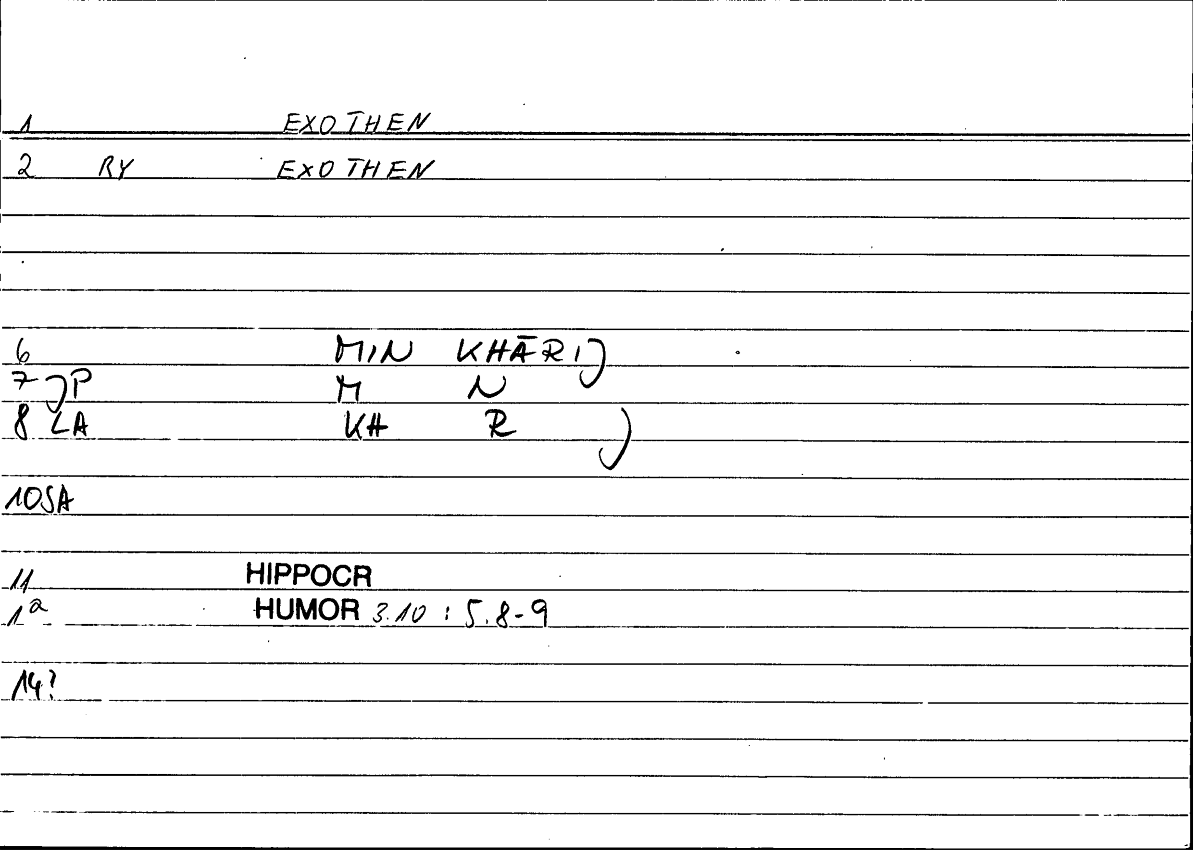 1 EXOTHEN
2 RY EXOTHEN
6 MIN KHĀRIJ
7 JP M N
8 LA KH R J
10 SA
11 HIPPOCR
1a HUMOR 3.10 : 5.8-9
14?